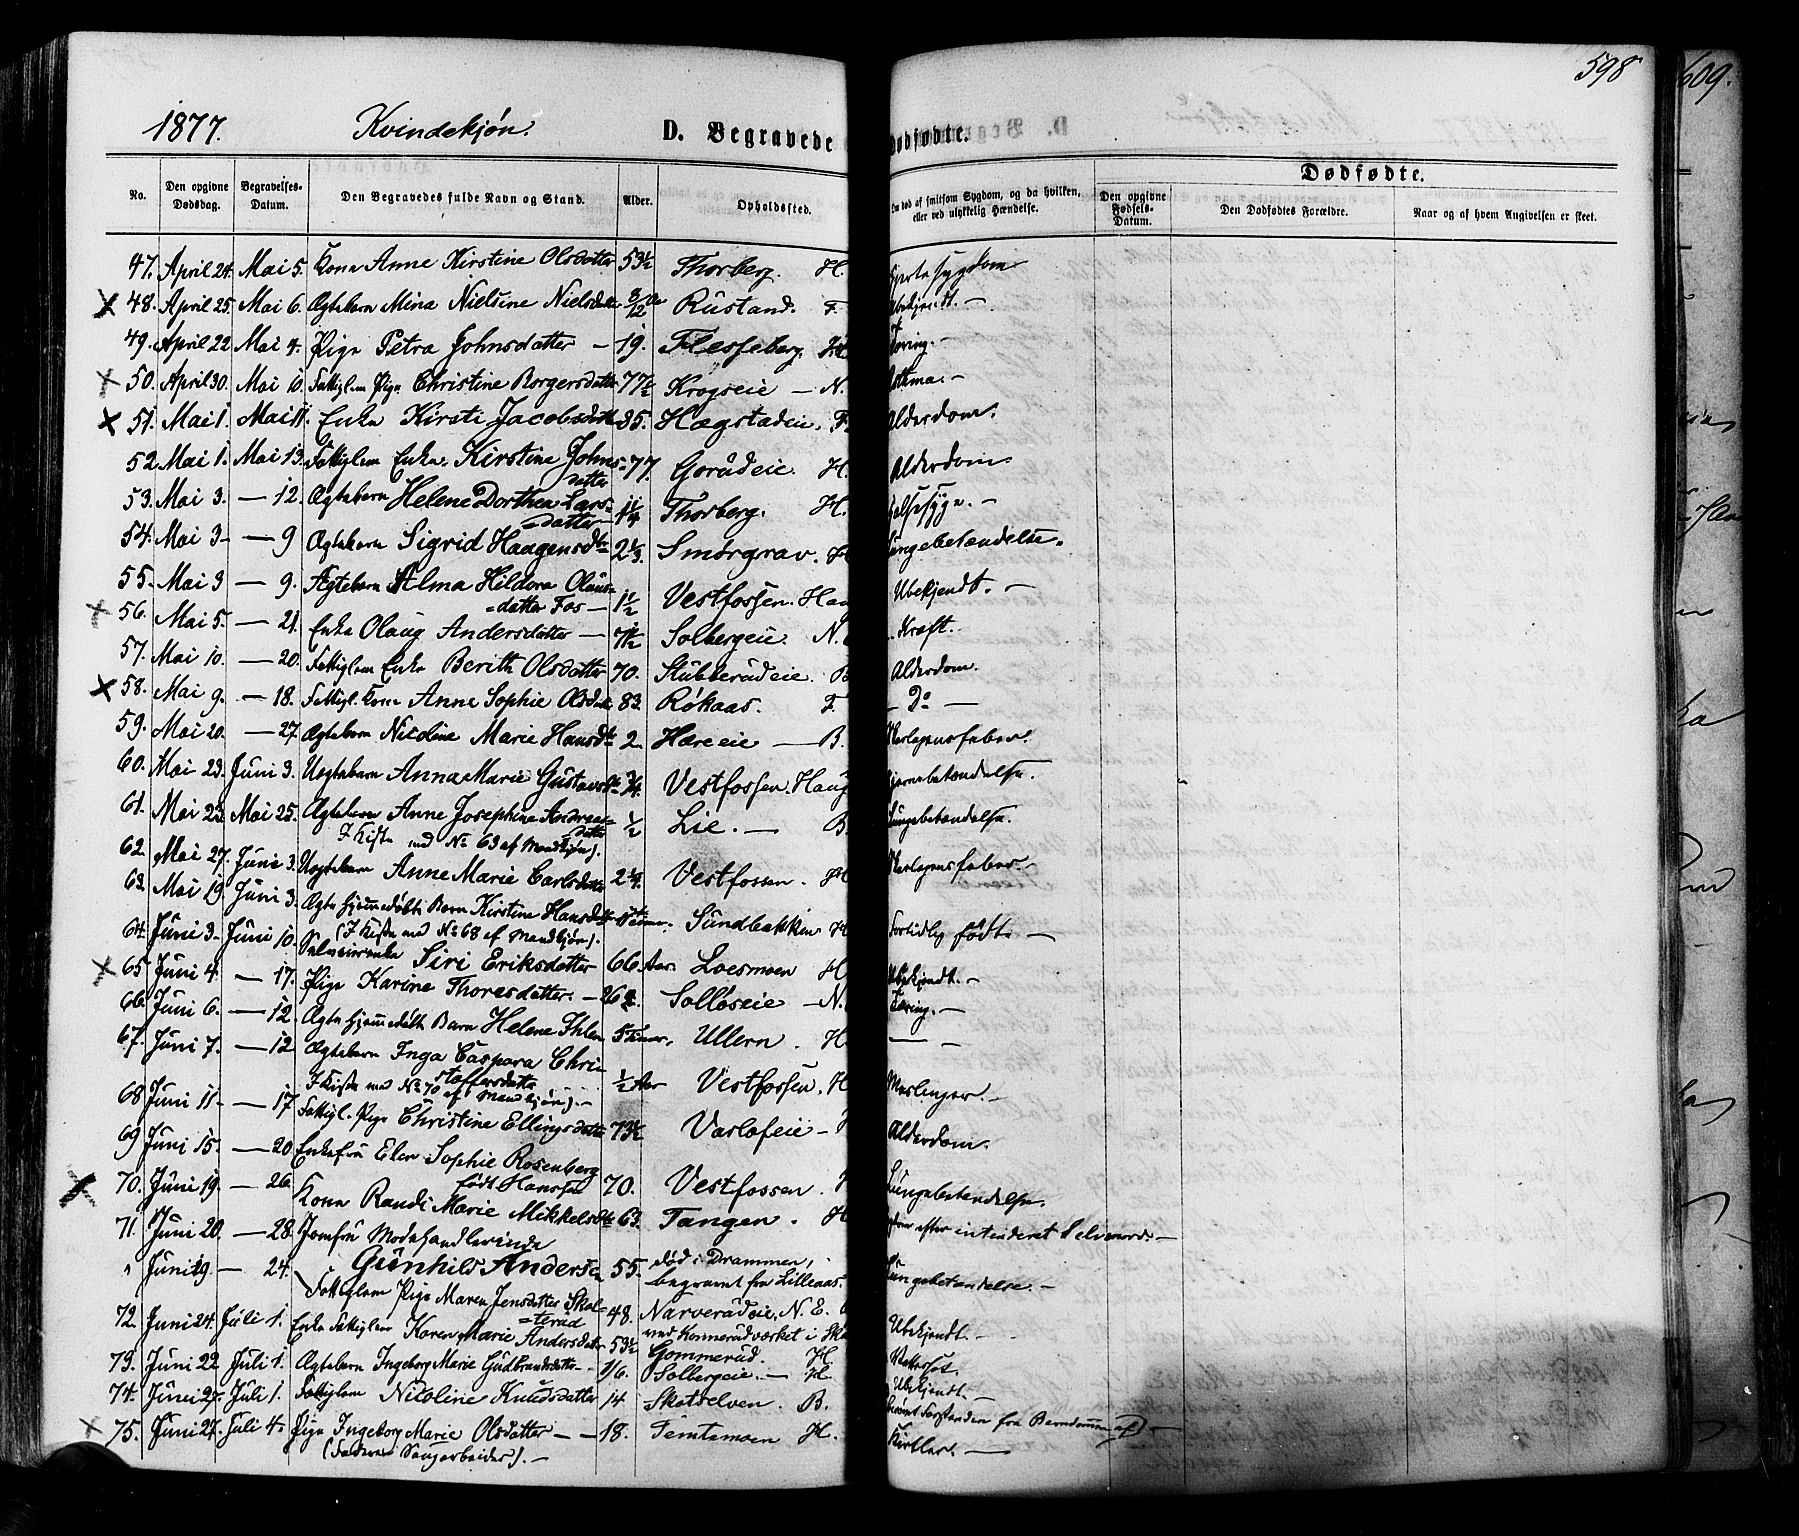 598
609.
1877. Kvindekjøn. D. Begravede Dødfødte.
Dødfødte.
No. Den opgivne Dødsdag. Begravelses-Datum. Den Begravedes fulde Navn og Stand. Alder. Opholdssted. Om død af smitsom Sygdom, og da hvilken, eller ved ulykkelig Hændelse. Den opgivne Fødsels-Datum. Den Dødfødtes Forældre. Naar og af hvem Angivelsen er skeet.
47. April 24. Mai 5. Kona Anne Kirstine Olsdatter 53½ Thorberg. H. Hjertesygdom
48. April 25. Mai 6. Ægtebarn Mina Nielsine Nielsdatter 8/12 Rustand. F. Ubekjendt. —
49. April 22 Mai 4. Pige Petra Johnsdatter — 19. Flesseberg. H. Tæring. —
50. April 30. Mai 10. Fattiglem Pige Christine Borgersdatter 77½ Krogseie — N. Asthma. —
51. Mai 1. Mai 11. Enke Kirsti Jacobsdatter 85. Hægstadeie. F. Alderdom.
52 Mai 1. Mai 13. Fattiglem Enke. Kirstine Johns= 77. Goradeie. H. Alderdom
datter
53. Mai 3. — 12. Ægtebarn Helene Dorthea Lars= 1¼ Thorberg. H. Halssyge. —
datter —
54. Mai 3 — — 9 Ægtebarn Sigrid Haagensdtr 2⅓. Smörgrav. H Lungebetændelse.
55. Mai 3 — 9. Ægtebarn Alma Hildora Olaus= 1½ Vestfossen. Haug Ubekjendt. —
=datter Fos —
56. Mai 5. — 21. Enke Olaug Andersdatter — 71½ Solbergeie. N. Kræft.
57. Mai 10. — 20. Fattiglem Enke Berith Olsdatter 70. Stubberudeie. B Alderdom.
58. Mai 9. — 18. Fattigl. Kone Anne Sophie Olsdatter 83. Røkaas. F. — Do —
59. Mai 20. — 27. Ægtebarn Nicoline Marie Hansdtr 2. Hareeie — B. Skarlagensfeber.
60. Mai 23. Juni 3. Uægtebarn Anna Marie Gustavsdtr ¾. Vestfossen. Haug Hjernebetændelse.
61. Mai 23. Mai 25. Ægtebarn Anne Josephine Andreas= ½ Lie. — B. Lungebetændelse.
datter
I Kiste med No 63 af Mandkjøn).
62. Mai 27. Juni 3. Uægtebarn Anne Marie Carlsdatter 2¼ Vestfossen. H Skarlagensfeber. —
63. Mai 19. Juni 3. Ægte hjemmedøbt Barn Kirstine Hansdtr Timer. Sundbakken H Fortidlig født. —
(I Kiste med No 68 af Mandkjøn).
64. Juni 3. Juni 10. Siri Eriksdatter 66 Aar. Loesmoen H Ubekjendt. —
65 Juni 4. — 17. Pige Karine Thoresdatter. — Solløseie — N. Tæring. —
66. Juni 6. — 12. Ægte hjemmedøbt Barn Helene Ihlen 5 Timer. Ullern. H. —
67. Juni 7. — 12 Ægtebarn Inga Caspara Chri= ½ Aar Vestfossen. H Meslinger. —
stoffersdatter
I Kiste med No 70 af Mandkjøn). —
68 Juni 11. — 17 Fattigl. Pige Christine Ellingsdatter 73½ Varlofeie — H Alderdom.
69 Juni 15. — 20 Enkefru Elen Sophie Rosenberg 70. Vestfossen. H Lungebetændelse.
født Hanssen
70. Juni 19. — 26. Kona Randi Marie Mikkelsdtr 63. Tangen. H efter intenderet Selvmord. —
71. Juni 20. — 28. Jomfru Modehandlerinde
„ Juni 19. — 24. Gunhild Andersen 55. død i Drammen, Lungebetændelse. —
begravet fra Lilleaas.
72. Juni 24. Juli 1. Fattiglem Pige Maren Jensdatter Skol= 48. Narverudeie, N. E. Ubekjendt. —
=terud
ved Konnerudværket i
Enke Fattiglem Karen Marie Andersdatter 53½ Gommerud. H Vattersot.
73. Juni 22 Juli 1. Ægtebarn Ingeborg Marie Gudbrandsdatter — 1/6. Solbergeie. — H Ubekjendt. —
74. Juni 27. Juli 1. Fattiglem Nicoline Knudsdatter 14 Skotselven. B. Forstanden fra Barndommen af) —
75. Juni 27. Juli 4. Pige Ingeborg Marie Olsdatter — — 18. Temtemoen H. Kirtler. —
(Faderen Saugarbeider). —